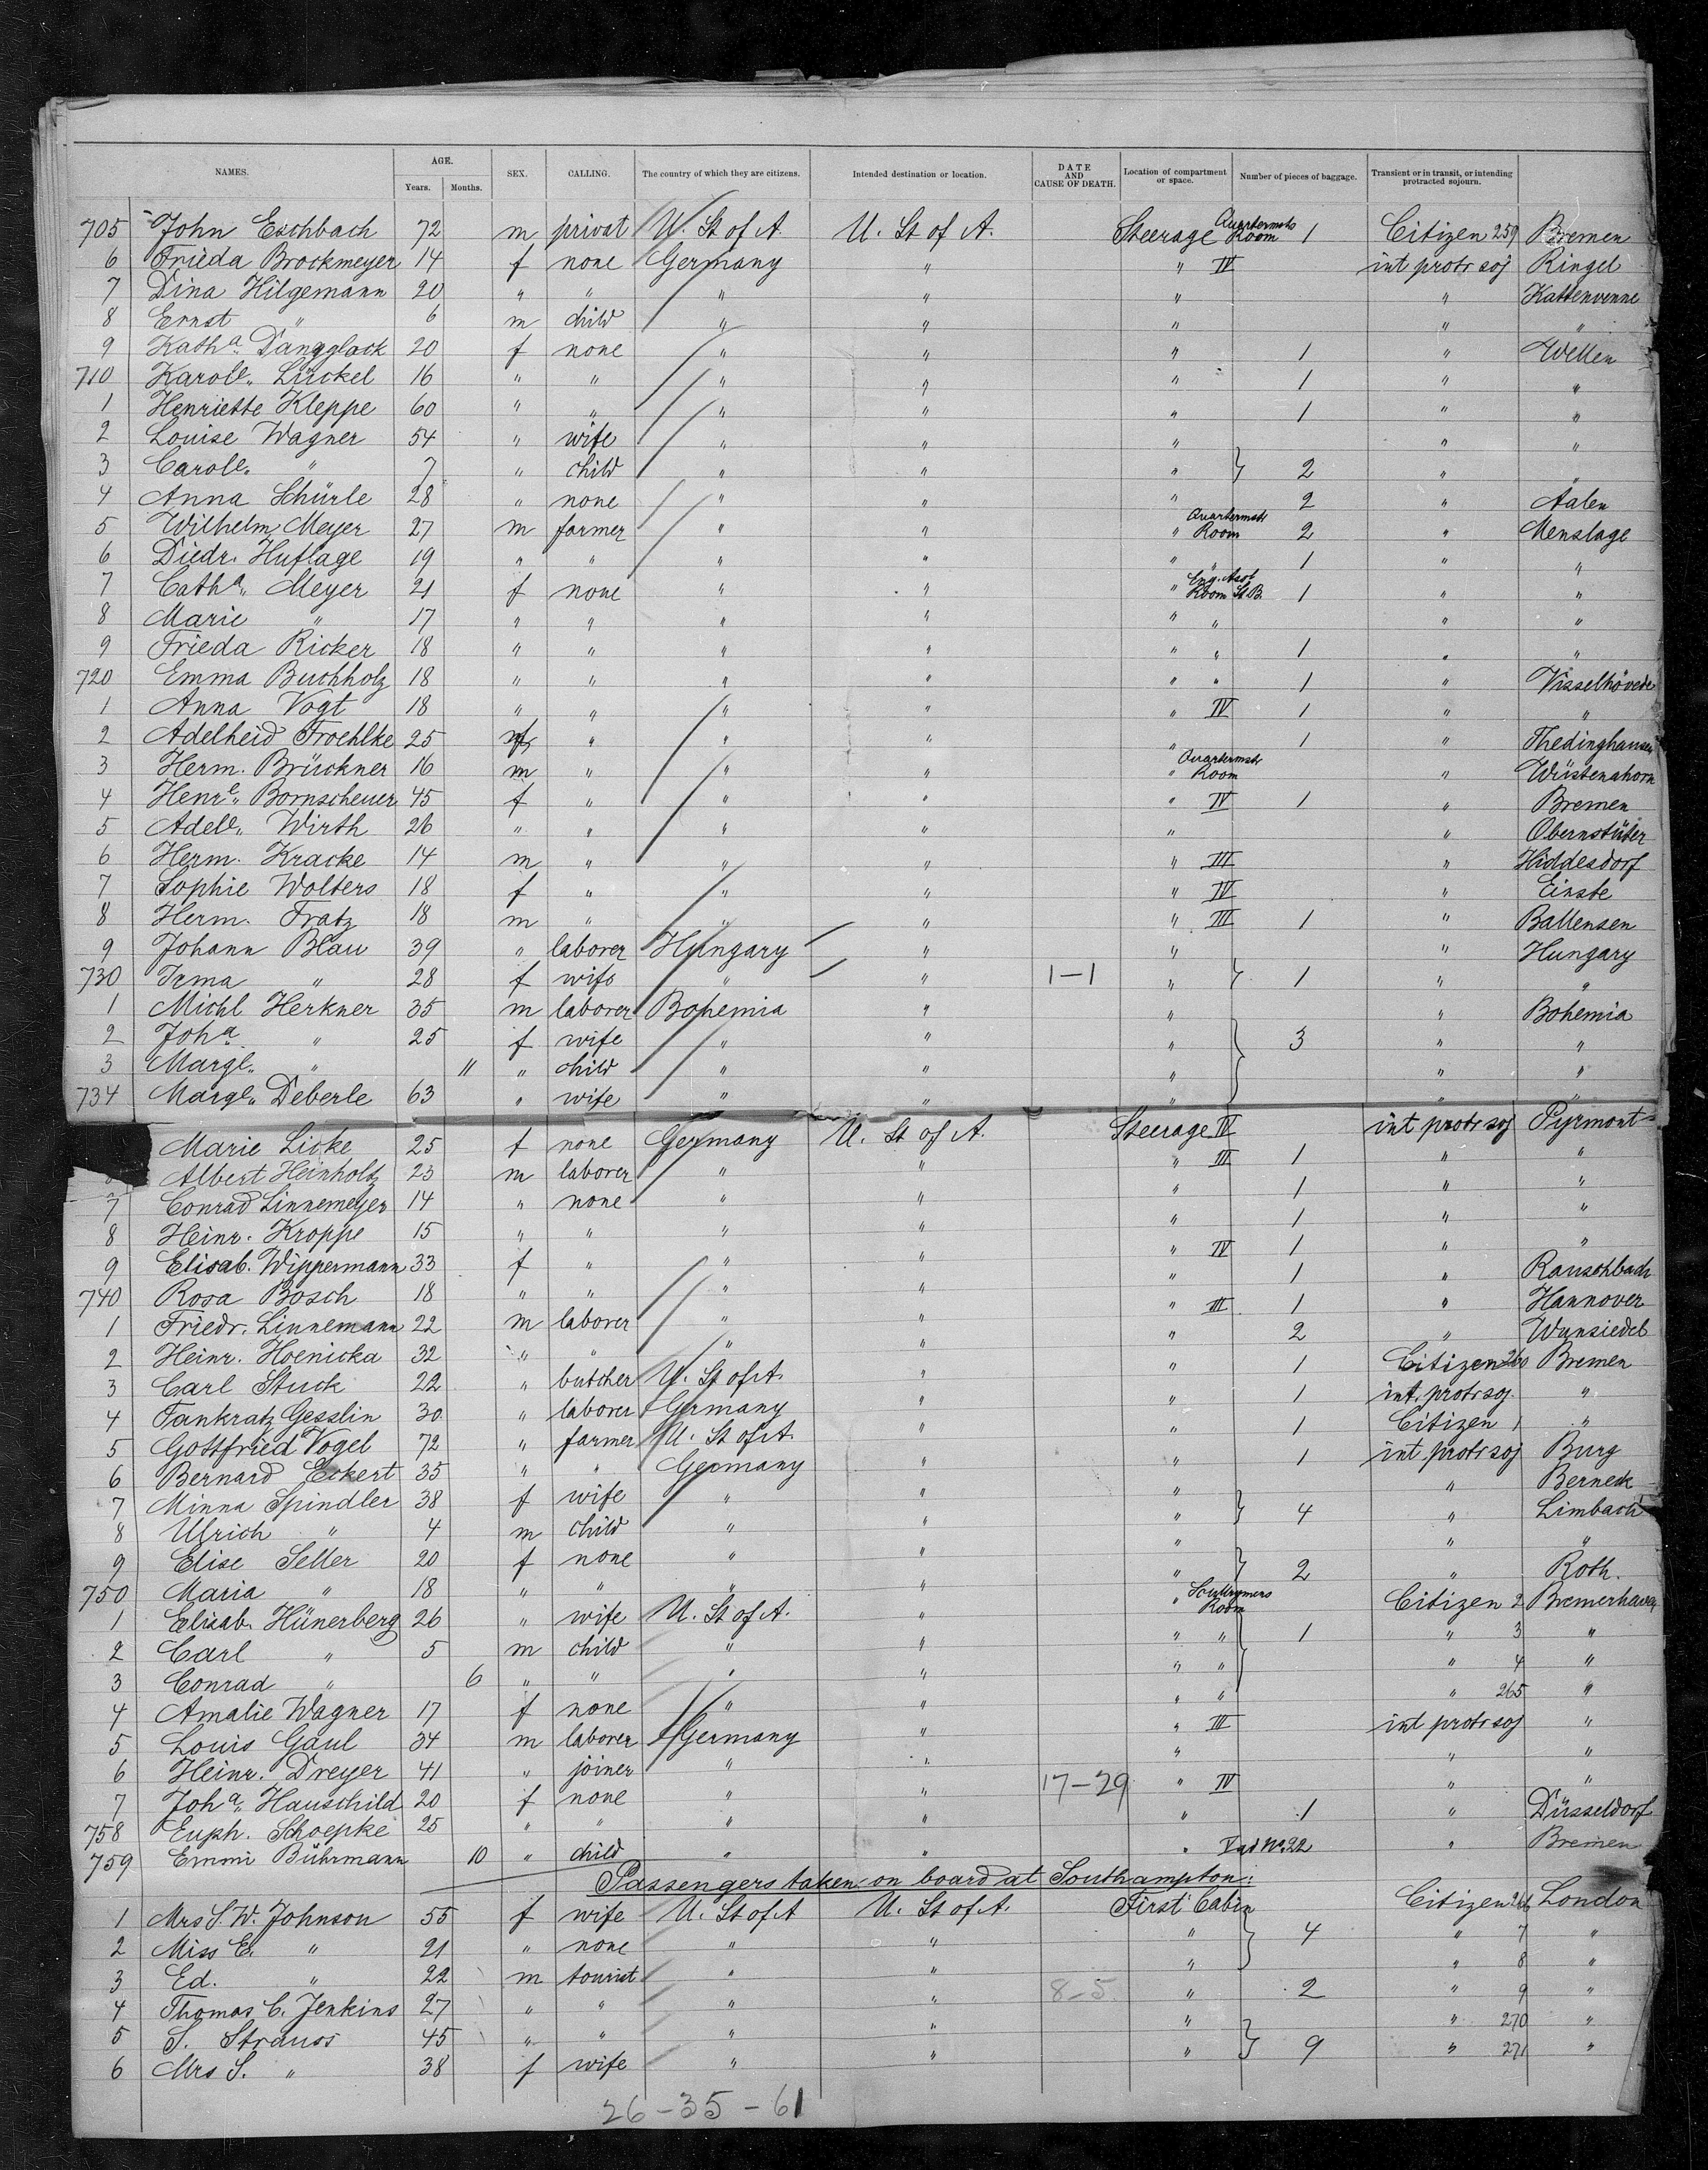 NAMES. AGE. Years. Months. SEX. CALLING. The country of which they are citizens. Intended destination or location. DATE AND CAUSE OF DEATH. Location of compartment or space. Number of pieces of baggage. Transient or in transit, or intending protracted sojourn.
705 John Eschbach 72 m privat U. St of A. U. St of A. Steerage Quartermstr Room 1 Citizen 259 Bremen
6 Frieda Brockmeyer 14 f none Germany " " IV int protr soj Ringel
7 Dina Hilgemann 20 " " " " " " Kattenvenne
8 Ernst " 6 m child " " " " "
9 Katha. Dangglack 20 f none " " " 1 " Wellen
710 Karole. Lückel 16 " " " " " 1 " "
1 Henriette Kleppe 60 " " " " " 1 " "
2 Louise Wagner 54 " wife " " " " "
3 Carole. " 7 " child " " " } 2 " "
4 Anna Schürle 28 " none " " " 2 " Aalen
5 Wilhelm Meyer 27 m farmer " " " Quartermstr Room 2 " Menslage
6 Diedr. Huflage 19 " " " " " " 1 " "
7 Catha. Meyer 21 f none " " " Eng. Asst Room St B. 1 " "
8 Marie " 17 " " " " " " " "
9 Frieda Ricker 18 " " " " " " 1 " "
720 Emma Buchholz 18 " " " " " " 1 " Visselhövede
1 Anna Vogt 18 " " " " " IV 1 " "
2 Adelheid Froehlke 25 f " " " " 1 " Thedinghausen
3 Herm. Brückner 16 m " " " " Quartermstr Room " Wüstenahorn
4 Henre. Bornscheuer 45 f " " " " IV 1 " Bremen
5 Adele. Wirth 26 " " " " " " Obernstüter
6 Herm. Kracke 14 m " " " " III " Hiddesdorf
7 Sophie Wolters 18 f " " " " IV " Einste
8 Herm. Fratz 18 m " " " " III 1 " Baltensen
9 Johann Blau 39 " laborer Hungary " " " Hungary
730 Irma " 28 f wife " " 1-1 " } 1 " "
1 Michl Herkner 35 m laborer Bohemia " " " Bohemia
2 Joha. " 25 f wife " " " } 3 " "
3 Margl. " 11 " child " " " " "
734 Margl. Deberle 63 " wife " " " " "
Marie Licke 25 f none Germany U. St of A. Steerage IV int protr soj Pyrmont
Albert Heinholtz 23 m laborer " " " III 1 " "
7 Conrad Linnemeyer 14 " none " " " 1 " "
8 Heinr. Kroppe 15 " " " " " 1 " "
9 Elisab. Wippermann 33 f " " " " IV 1 " "
740 Rosa Bosch 18 " " " " " 1 " Rauschbach
1 Friedr. Linnemann 22 m laborer " " " III 1 " Hannover
2 Heinr. Hoenicka 32 " " " " " 2 " Wunsiedel
3 Carl Stuck 22 " butcher U. St of A. " " 1 Citizen 260 Bremen
4 Fankratz Gesslin 30 " laborer Germany " " 1 int. protr soj. "
5 Gottfried Vogel 72 " farmer U. St of A. " " 1 Citizen 1 "
6 Bernard Eckert 35 " " Germany " " 1 int protr soj Burg
7 Minna Spindler 38 f wife " " " } 4 " Berneck
8 Ulrich " 4 m child " " " " Limbach
9 Elise Seller 20 f none " " " } 2 " "
750 Maria " 18 " " " " " " Roth.
1 Elisab. Hünerberg 26 " wife U. St of A. " " Room Citizen 2 Bremerhaven
2 Carl " 5 m child " " " " } 1 " 3 "
3 Conrad " 6 " " " " " " " 4 "
4 Amalie Wagner 17 f none " " " " " 265 "
5 Louis Gaul 34 m laborer Germany " " III int protr soj "
6 Heinr. Dreyer 41 " joiner " " " " "
7 Joha. Hauschild 20 f none " " 17-29 " IV " "
758 Euph. Schoepke 25 " " " " " 1 " Düsseldorf
759 Emmi Bührmann 10 " child " " " V ad No. 22 " Bremen
Passengers taken on board at Southampton:
1 Mrs S. W. Johnson 55 f wife U. St of A U. St of A. First Cabin Citizen 266 London
2 Miss E. " 21 " none " " " } 4 " 7 "
3 Ed. " 22 m tourist " " " " 8 "
4 Thomas C. Jenkins 27 " " " " 8-5 " 2 " 9 "
5 S. Strauss 45 " " " " " } 9 " 270 "
6 Mrs S. " 38 f wife " " " " 271 "
26-35-61